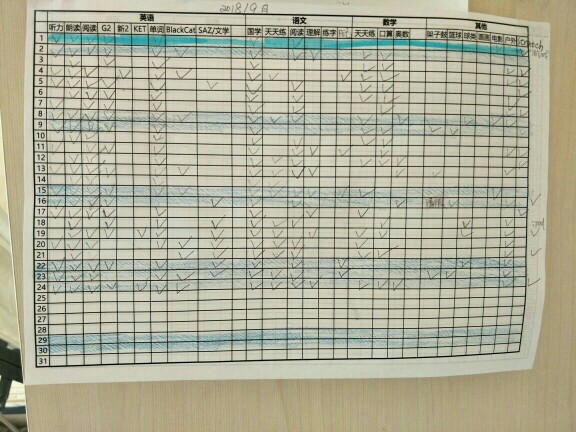 2018/9月
英语 语文 数学 其他
听力 朗读 阅读 G2 新2 KET 单词 BlackCat SAZ/文学 国学 天天练 阅读 理解 练字 天天练 口算 奥数 架子鼓 篮球 球类 画画 电影 户外 Scratch
1
2
3
4
5
6
7
8
9
10
11
12
13
14
15
16
17
18
19
20
21
22
23
24
25
26
27
28
29
30
31